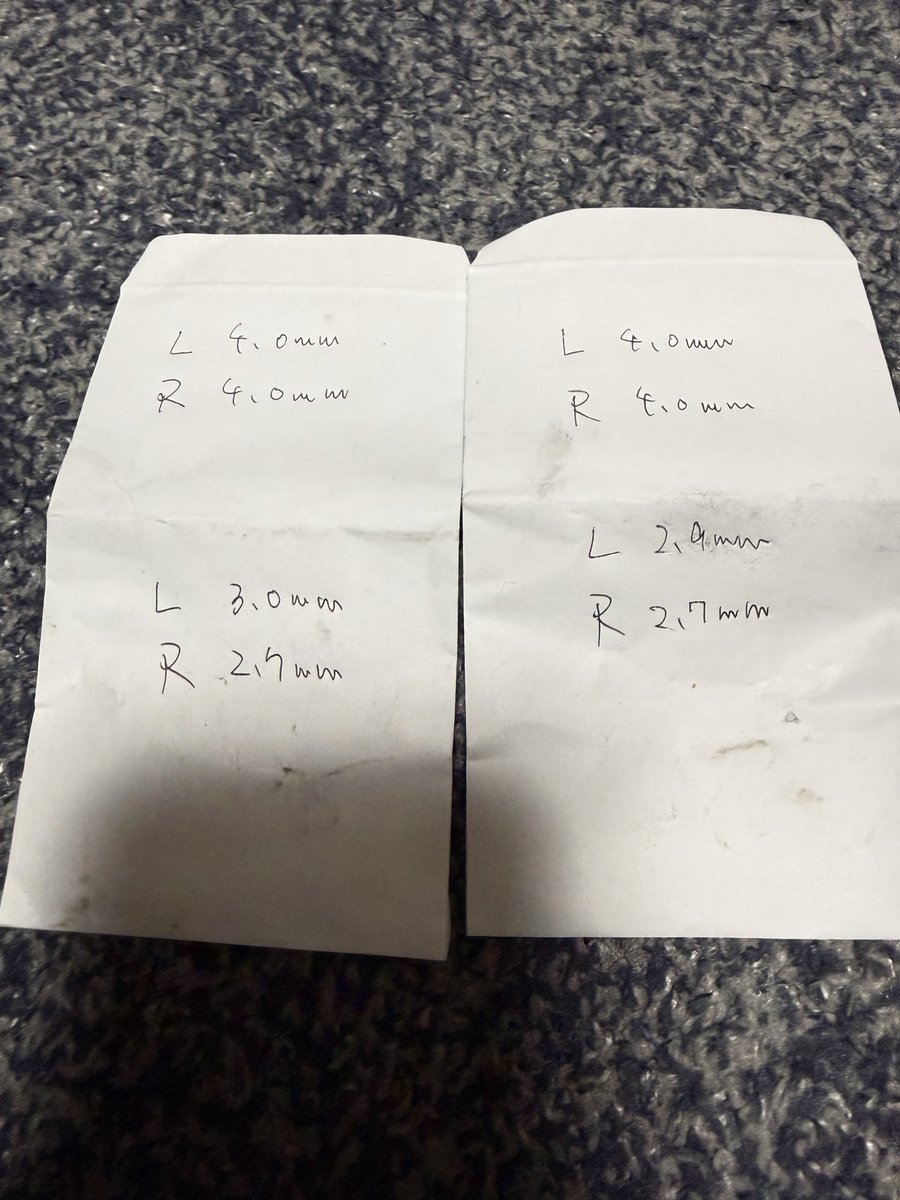 L 4.0mm
R 4.0mm
L 3.0mm
R 2.7mm
L 4.0mm
R 4.0mm
L 2.9mm
R 2.7mm